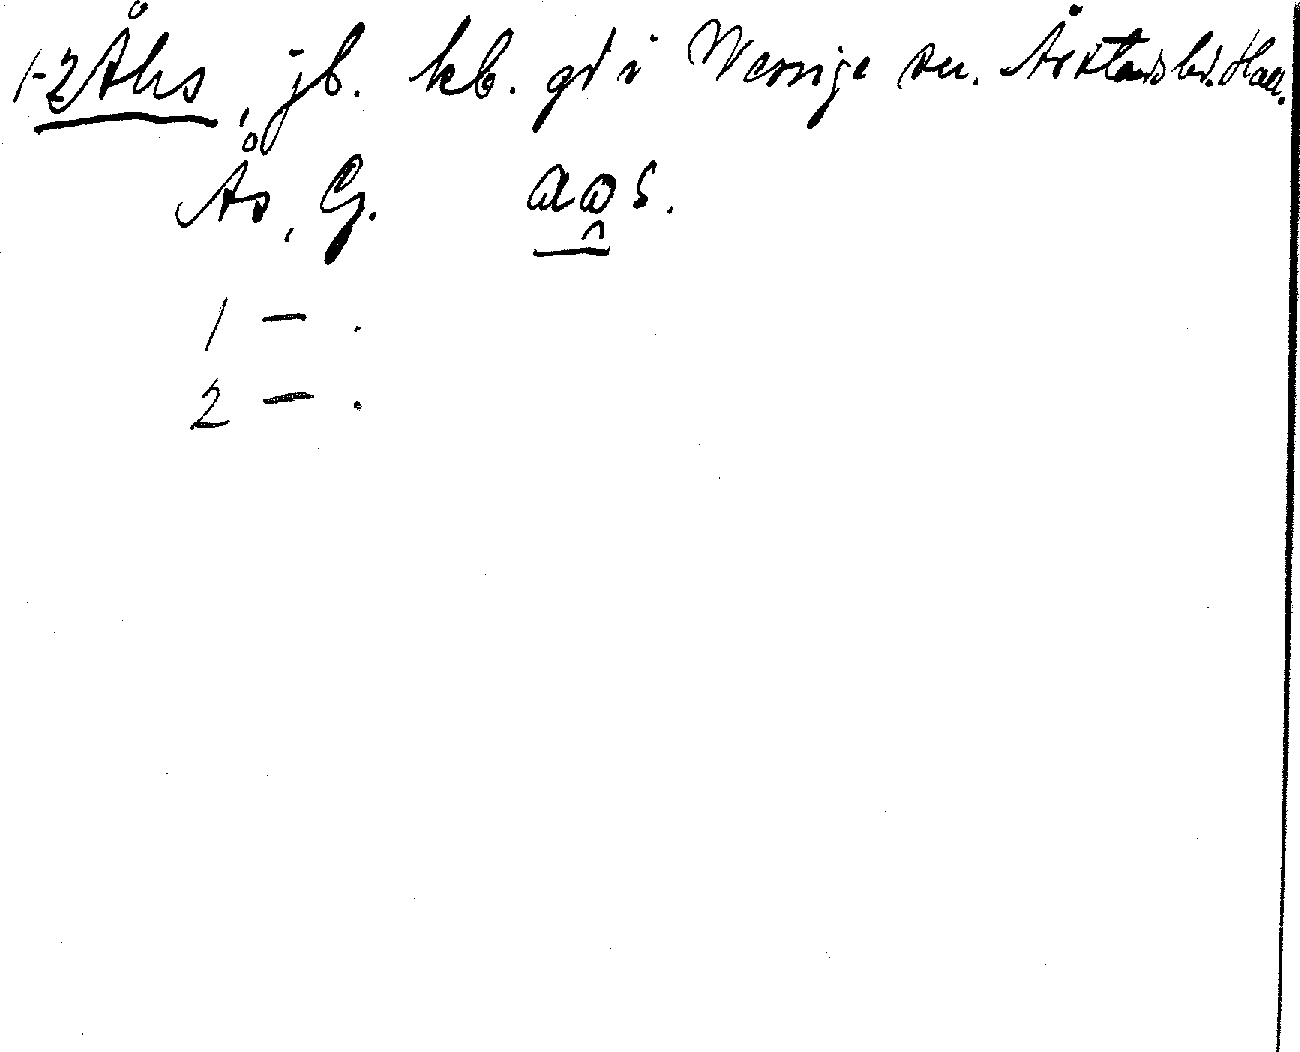 1-2 Åhs, jb. kb. gd i Wessige sn. Årstads hd. Hall.
Ås, G. aos.
1 — .
2 — .